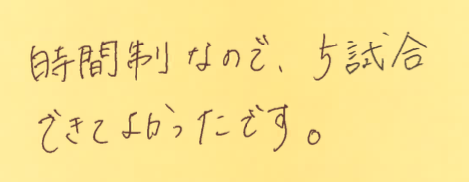 時間制なので、5試合
できてよかったです。